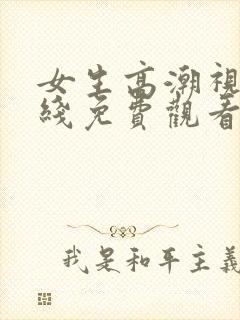 女生高潮視
綫免費觀看
我是和平主義